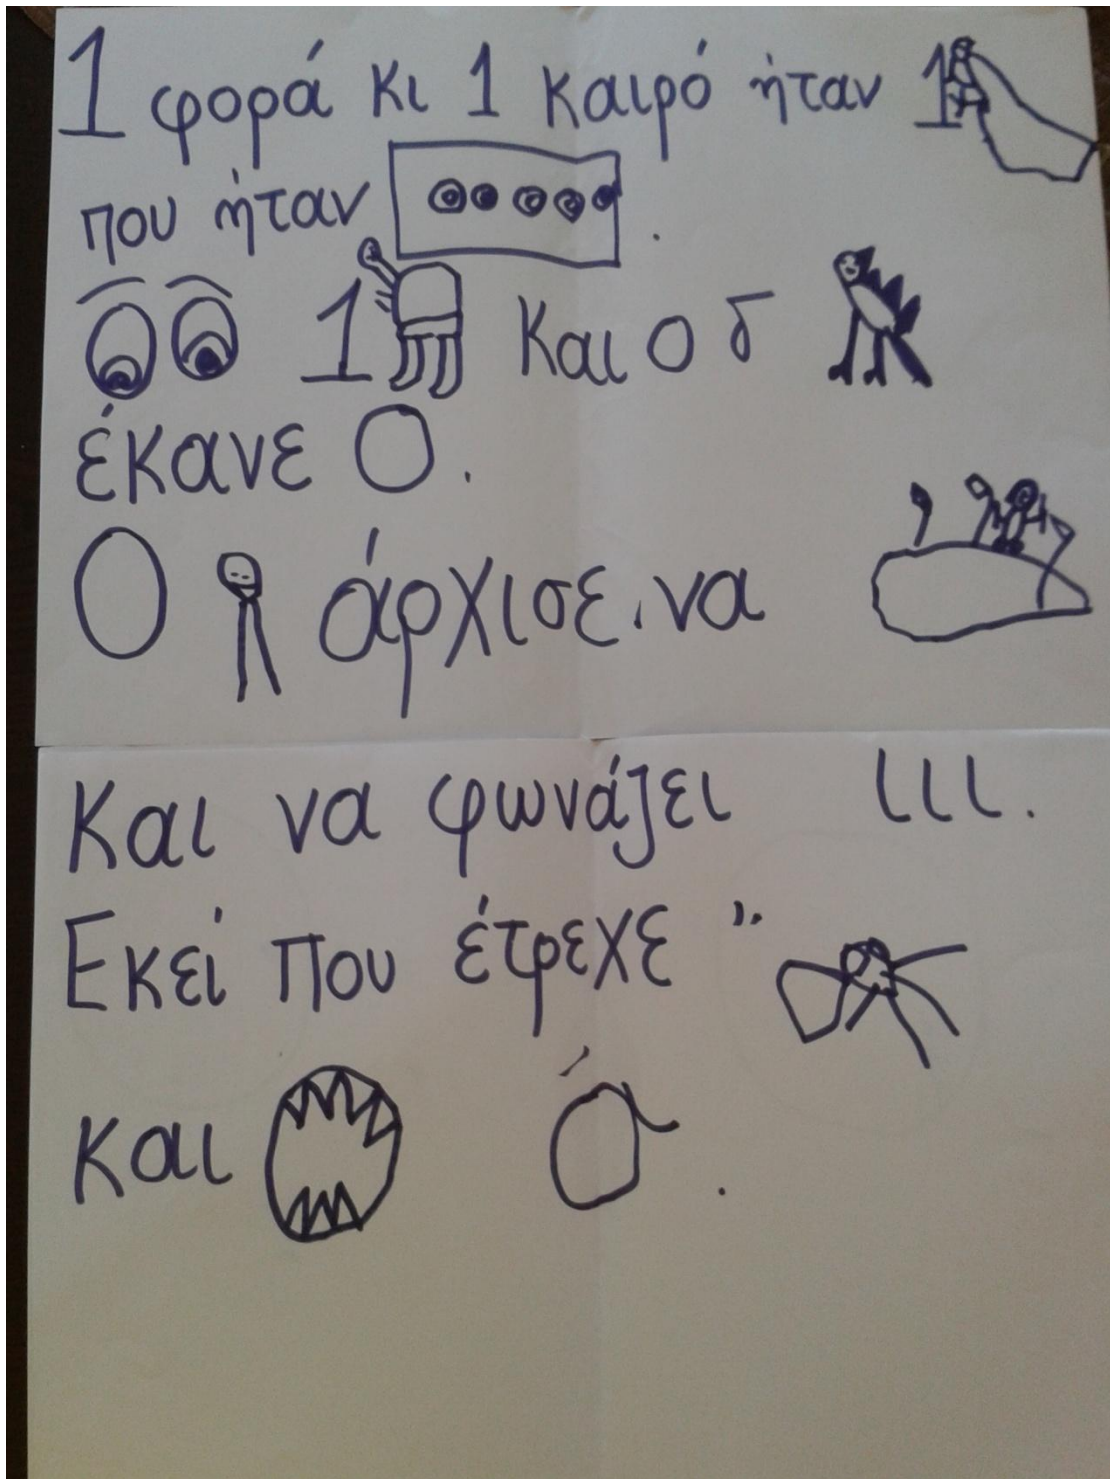 1 φορά κι 1 καιρό ήταν 1
που ήταν .
1 και ο δ
έκανε Ο.
Ο άρχισε.να
Και να φωνάζει ιιι.
Εκεί που έτρεχε "
και ά .